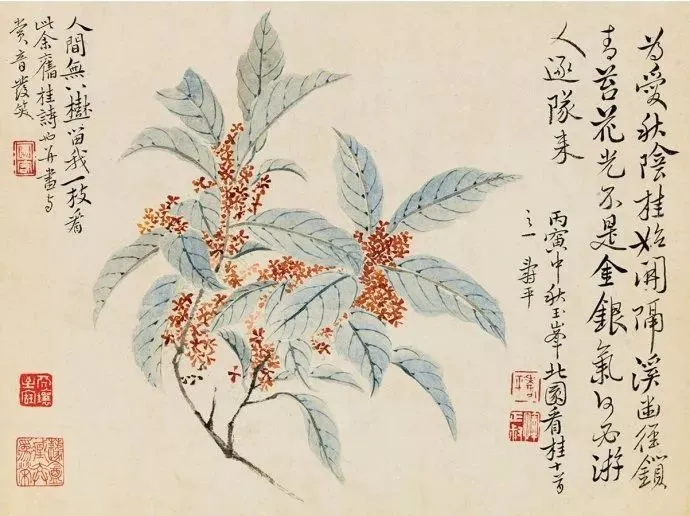 為愛秋陰桂始開隔溪幽徑鎖
青苔花光不是金銀氣何必游
人逐隊来
丙寅中秋玉峯北園看桂十首
之一 壽平
人間無八樹留我一枝看
此余舊桂詩也并畫与
賞音發笑